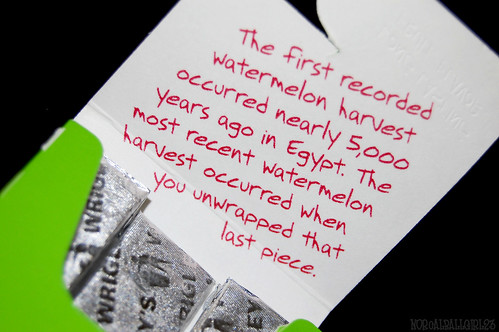 The first recorded
watermelon harvest
occurred nearly 5,000
years ago in Egypt. The
most recent watermelon
harvest occurred when
you unwrapped that
last piece.
WRIGL
WRIGL
Y'S